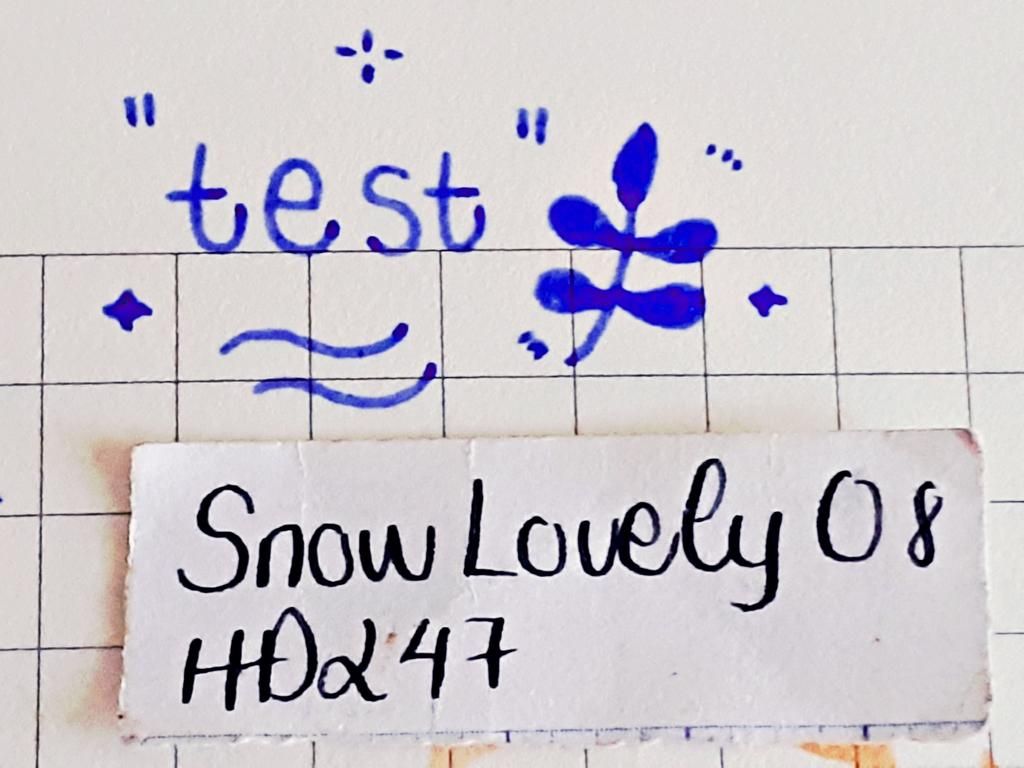 "test"
Snow Lovely 08
HD247